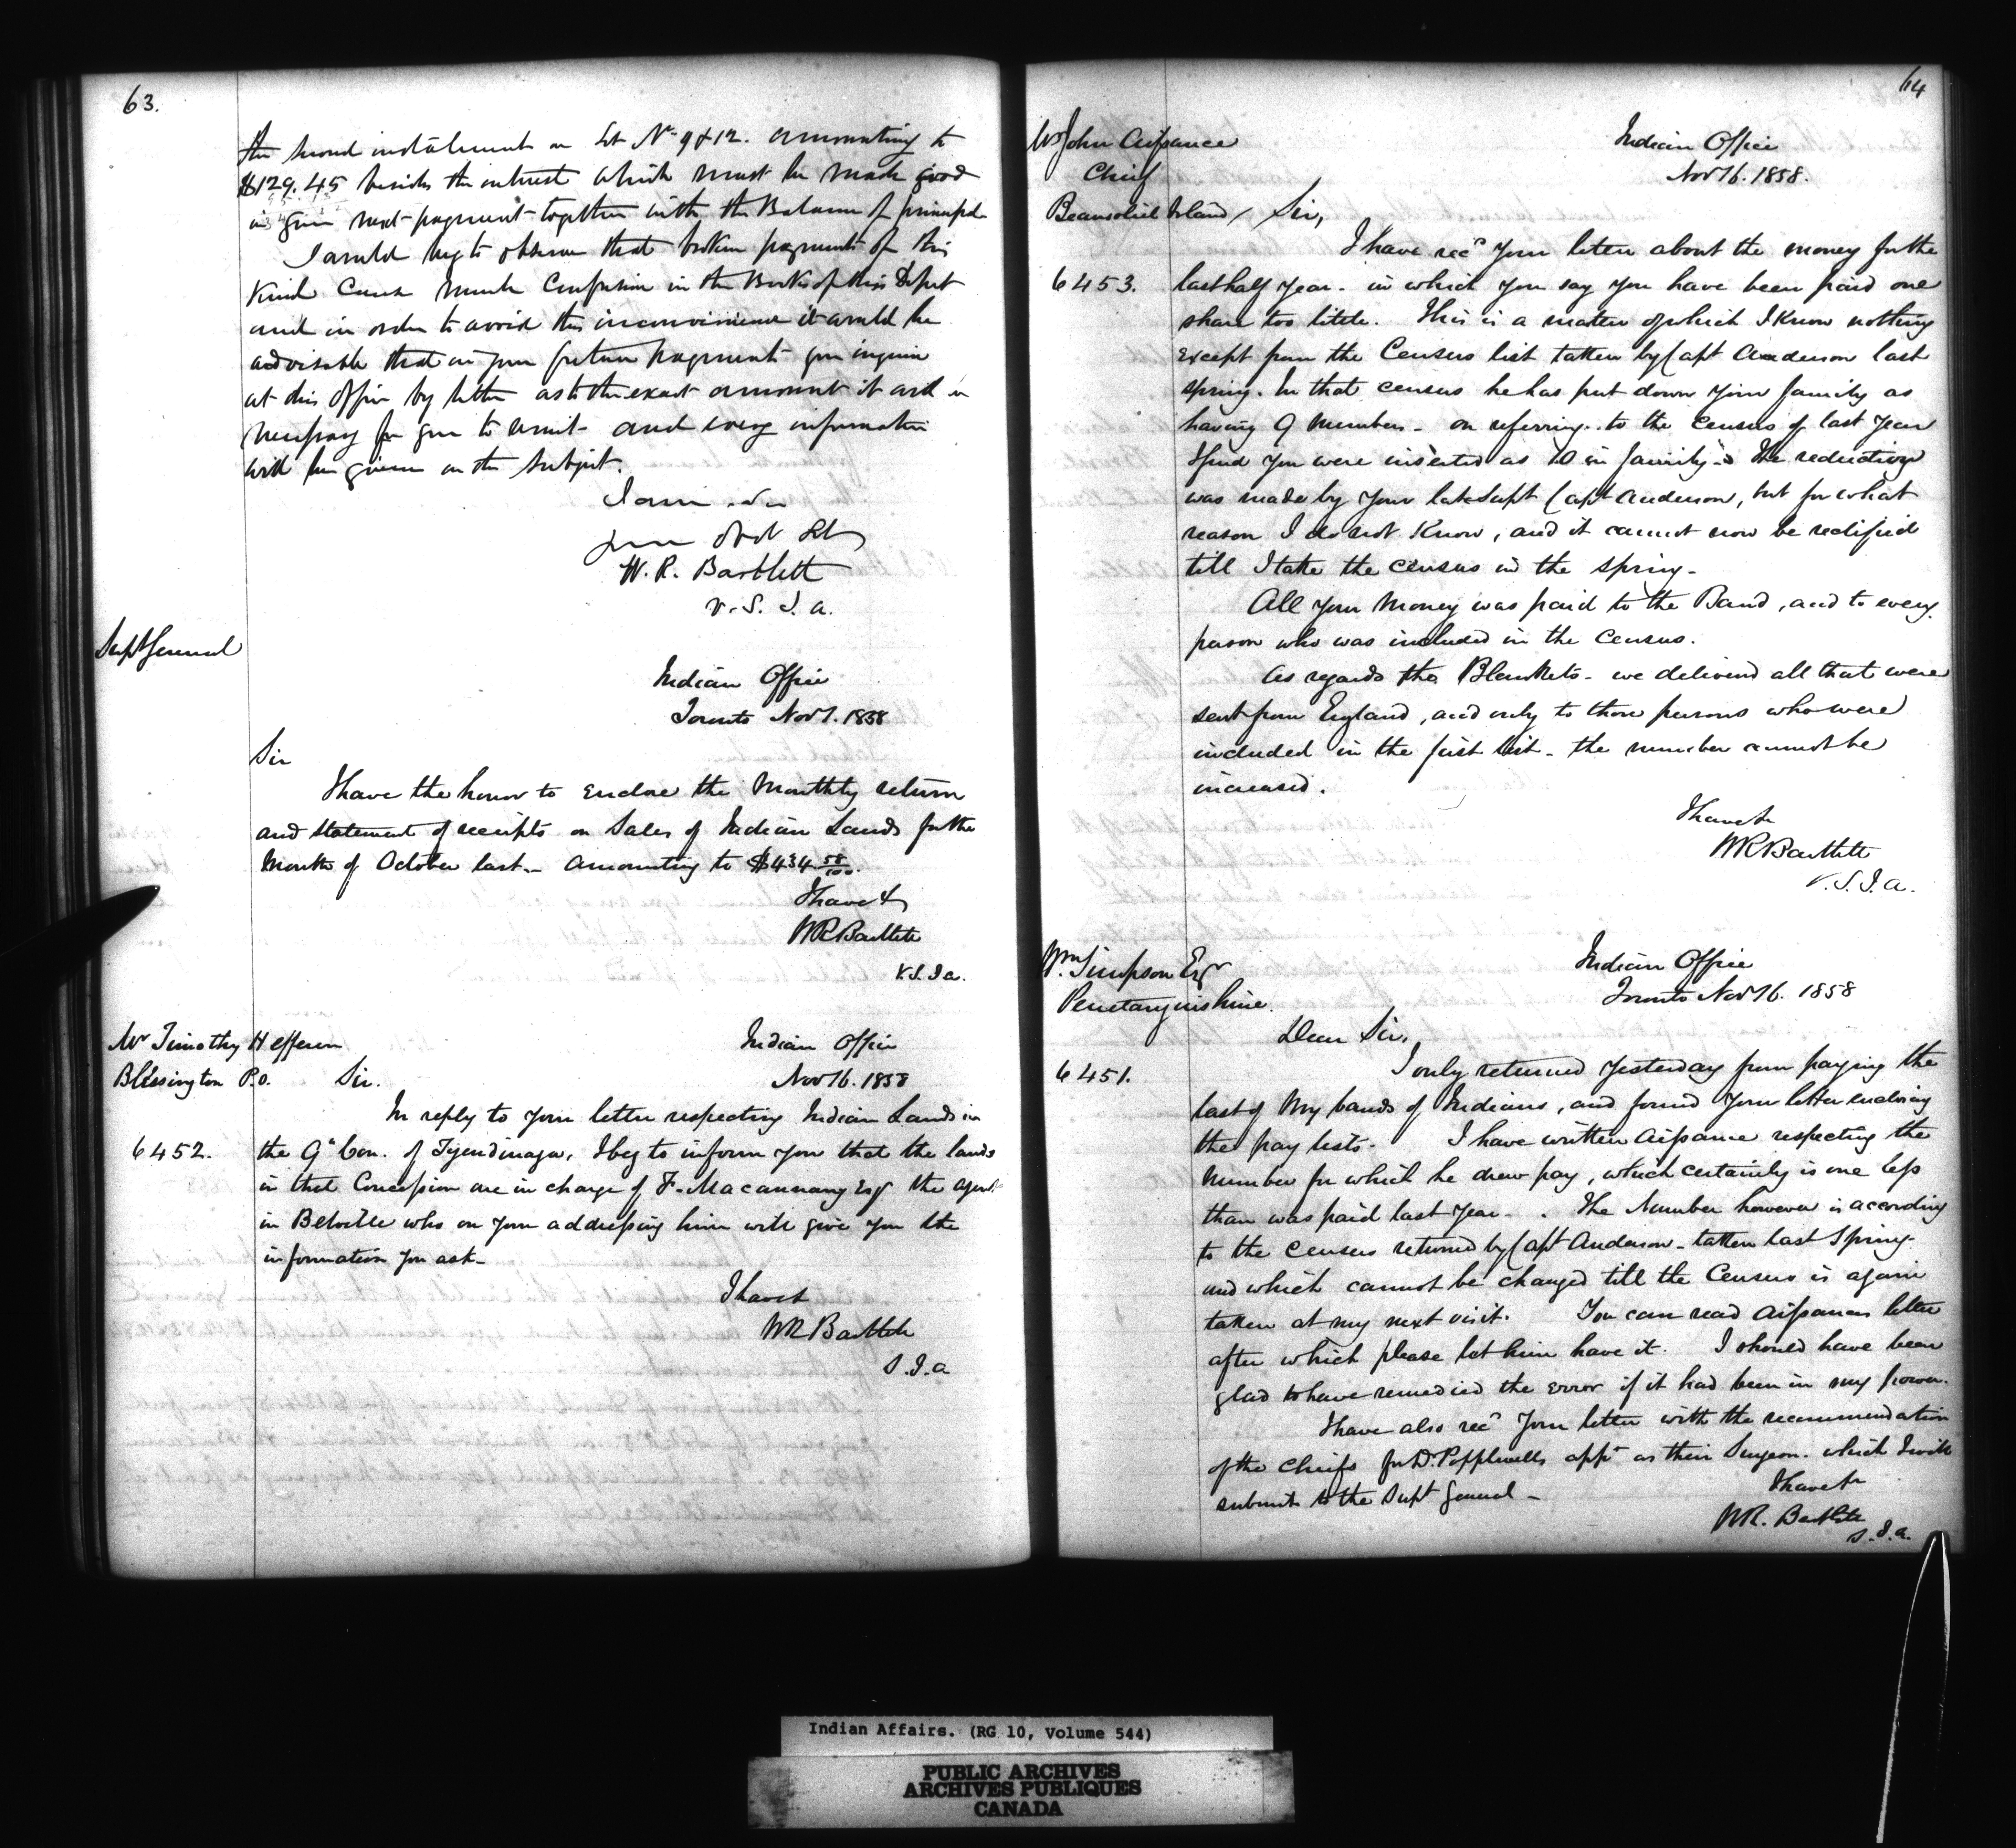 63.
the second instalment on Lot No 9 & 12. amounting to
$129.45 besides the interest which must be made good
in your next payment together with the Balance of principal
I would beg to observe that broken payments of this
kind cause much Confusion in the Books of this Depnt
and in order to avoid this inconvenience it would be
advisable that in your future payments you inquire
at this Office by letter as to the exact amount it will be
necessary for you to remit and every information
will be given on the subject.
I am Sir
your Obdt St
W. R. Bartlett
V.S.I.A.
Supt General
Indian Office
Toronto Nov 7. 1858
Sir
I have the honor to enclose the Monthly return
and statement of receipts on Sales of Indian Lands for the
Month of October last - amounting to $434 58/100.
I have &
WR Bartlett
V.S.I.a.
Mr Timothy Hefferen
Blessington P.O.
Indian Office
Nov 16. 1858
Sir.
In reply to your letter respecting Indian Lands in
6452.
the 9" Con. of Tyendinaga, I beg to inform you that the lands
in that Concession are in charge of F. Macannany Esqr the agent
in Belville who on your addressing him will give you the
information you ask -
I have &
WR Bartlett
S.I.a
64
Mr John Aisance
Chief
Beausoliel Island
Indian Office
Nov 16. 1858.
Sir,
I have recd your letter about the money for the
6453.
last half year - in which you say you have been paid one
share too little. This is a matter of which I know nothing
except from the Census list taken by Capt Anderson last
spring. In that census he has put down your family as
having 9 members - on referring to the Census of last year
I find you were inserted as 10 in family - The reduction
was made by your late Supt Capt Anderson, but for what
reason I do not know, and it cannot now be rectified
till I take the census in the spring -
All your money was paid to the Band, and to every
person who was included in the Census.
As regards the Blankets - we delivered all that were
sent from England, and only to those persons who were
included in the first list - the number cannot be
increased.
I have &
WR Bartlett
V.S.I.a.
Wm Simpson Esqr
Penetanguishine.
Indian Office
Toronto Nov 16. 1858
Dear Sir,
6451.
I only returned yesterday from paying the
last of my bands of Indians, and found your letter enclosing
the pay lists. I have written Aisance respecting the
number for which he drew pay, which certainly is one less
than was paid last year - . The Number however is according
to the census returned by Capt Anderson - taken last Spring
and which cannot be changed till the Census is again
taken at my next visit. You can read Aisances letter
after which please let him have it. I should have been
glad to have remedied the error if it had been in my power.
I have also recd your letter with the recommendation
of the Chiefs for Dr. Popplewells appt as their Surgeon. which I will
submit to the Supt General -
I have &
WR. Bartlett
S.I.a.
Indian Affairs. (RG 10, Volume 544)
PUBLIC ARCHIVES
ARCHIVES PUBLIQUES
CANADA